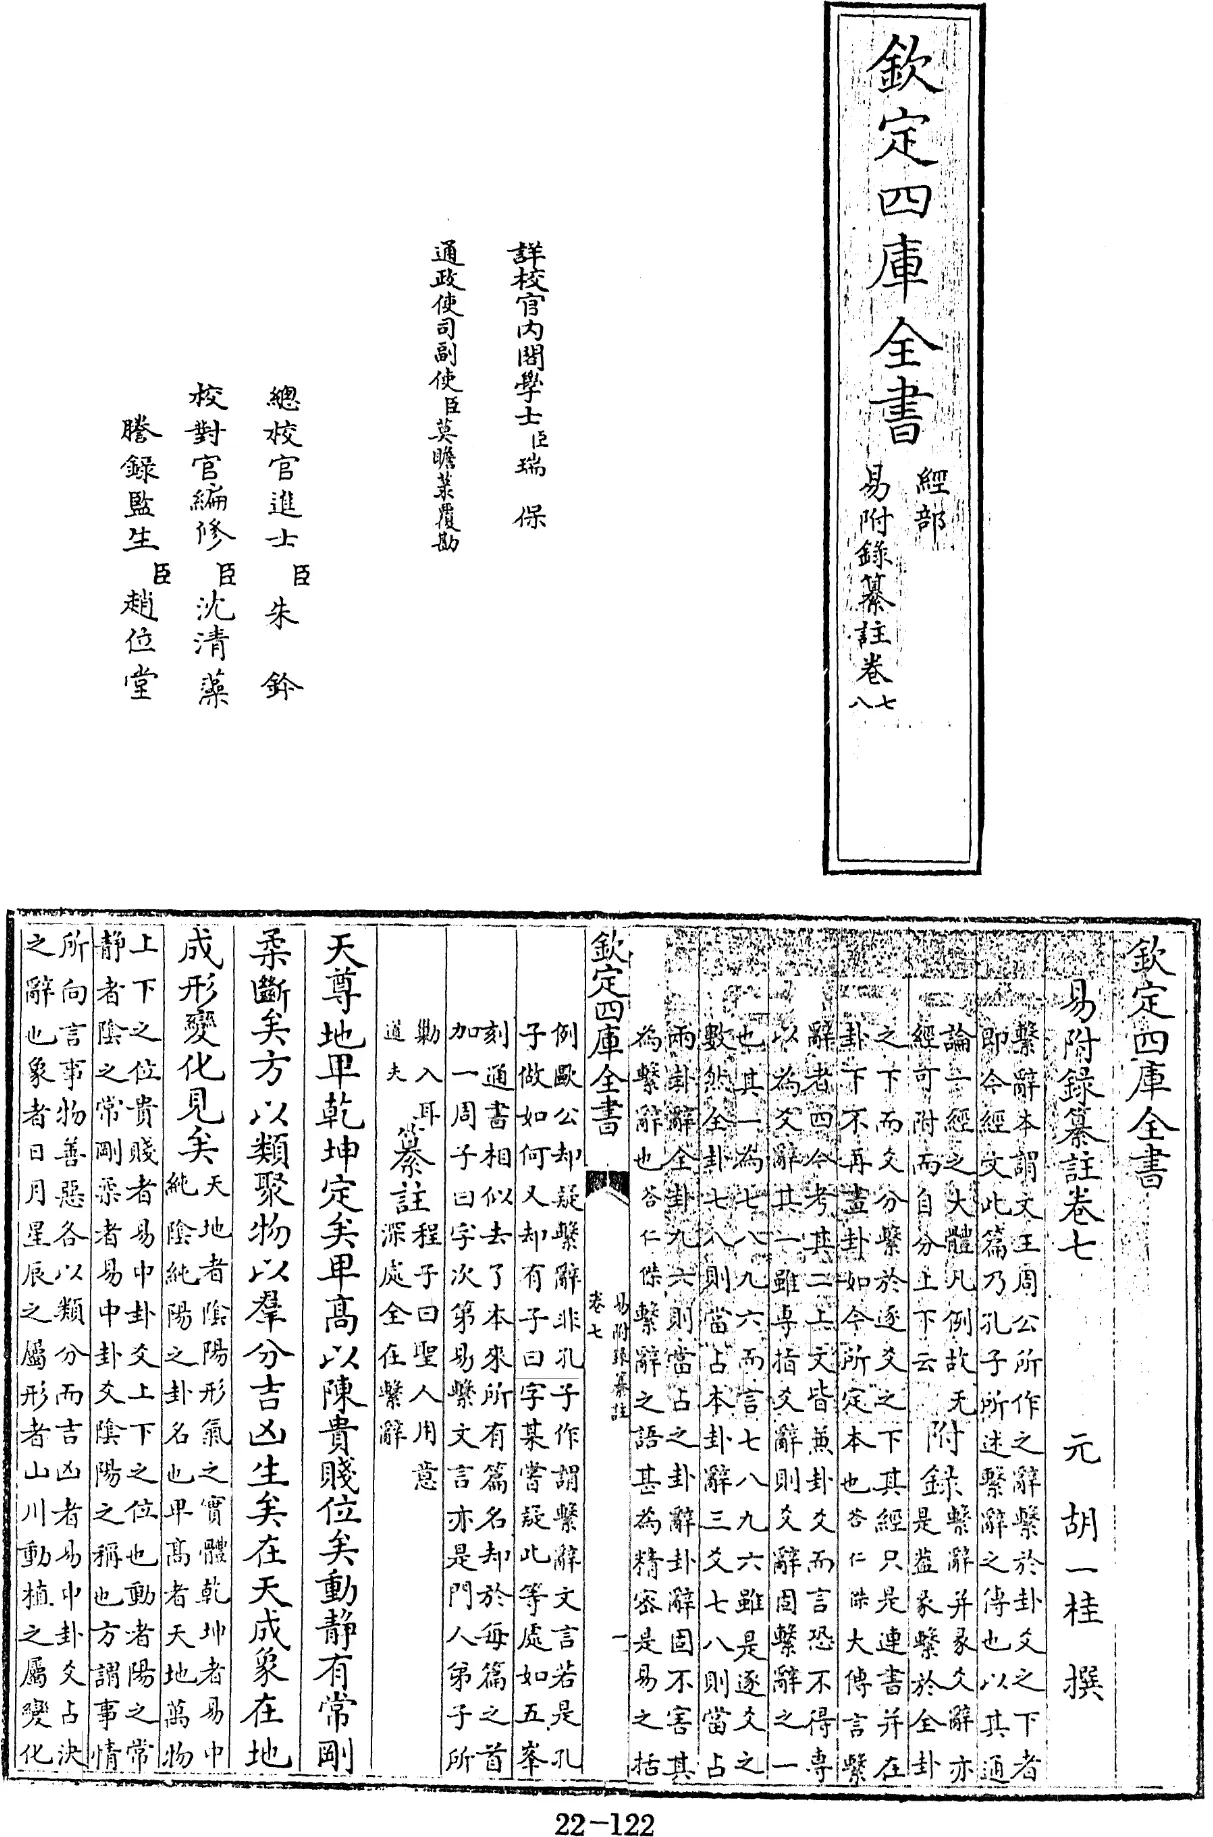 欽定四庫全書
經部
易附錄纂註卷七八
詳校官內閣學士臣瑞保
通政使司副使臣莫瞻菉覆勘
總校官進士臣朱鈐
校對官編修臣沈清藻
謄錄監生臣趙位堂
欽定四庫全書
易附錄纂註卷七
元 胡一桂 撰
繫辭本謂文王周公所作之辭繫於卦爻之下者
即今經文此篇乃孔子所述繫辭之傳也以其通
論一經之大體凡例故无
經可附而自分上下云
附錄
繫辭并彖爻辭亦
是蓋彖繫於全卦
之下而爻分繫於逐爻之下其經只是連書并在
卦下不再畫卦如今所定本也答仁傑大傳言繫
辭者四今考其二上文皆兼卦爻而言恐不得専
以為爻辭其一雖専指爻辭則爻辭固繫辭之一
也其一為七八九六而言七八九六雖是逐爻之
數然全卦七八則當占本卦辭三爻七八則當占
兩卦辭全卦九六則當占之卦辭卦辭固不害其
為繫辭也答仁傑繫辭之語甚為精密是易之括
欽定四庫全書
易附錄纂註
卷七
一
例歐公却疑繫辭非孔子作謂繫辭文言若是孔
子做如何又却有子曰字某嘗疑此等處如五峯
刻通書相似去了本來所有篇名却於每篇之首
加一周子曰字次第易繫文言亦是門人弟子所
勦入耳
道夫
纂註
程子曰聖人用意
深處全在繫辭
天尊地卑乾坤定矣卑高以陳貴賤位矣動靜有常剛
柔斷矣方以類聚物以羣分吉凶生矣在天成象在地
成形變化見矣
天地者陰陽形氣之實體乾坤者易中
純陰純陽之卦名也卑高者天地萬物
上下之位貴賤者易中卦爻上下之位也動者陽之常
靜者陰之常剛柔者易中卦爻陰陽之稱也方謂事情
所向言事物善惡各以類分而吉凶者易中卦爻占決
之辭也象者日月星辰之屬形者山川動植之屬變化
22-122